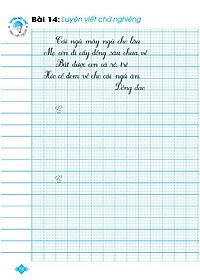 Bài 14: Luyện viết chữ nghiêng
Cái ngủ mày ngủ cho lâu
Mẹ còn đi cấy đồng sâu chưa về
Bắt được con cá rô trê
Hỏi cổ đem về cho cái ngủ ăn.
Đồng dao
C
C